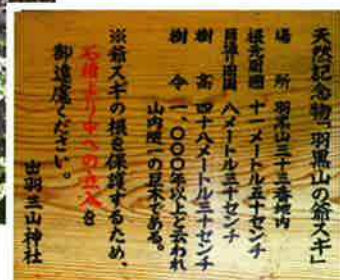 天然記念物「羽黒山の爺スギ」
場所 羽黒山三十三番地内
根元周囲 十一メートル五十センチ
目通り周囲 八メートル五十センチ
樹高 四十八メートル五十センチ
樹令 一、〇〇〇年以上と云われ
山内随一の巨木である。
※爺スギの根を保護するため、
石積より中への立入を
御遠慮ください。
出羽三山神社